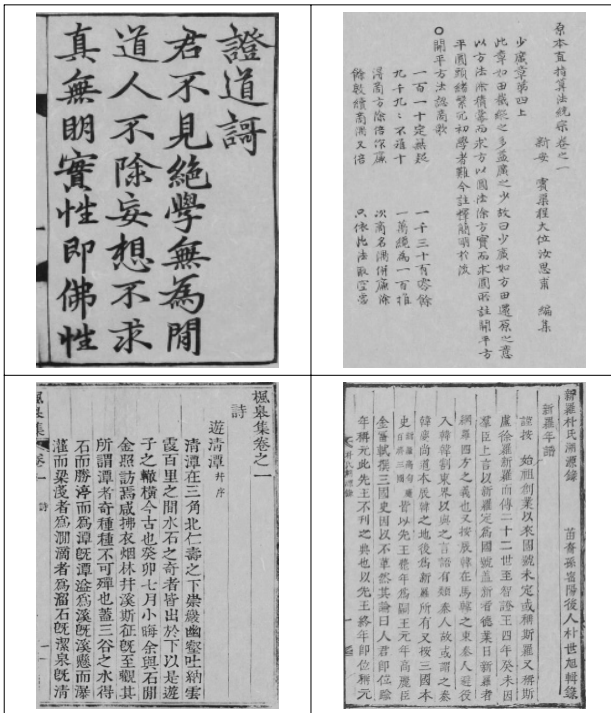 證道謌
君不見絕學無為閒
道人不除妄想不求
真無明實性即佛性
原本直指算法統宗卷之一
新安 賓渠程大位汝思甫 編集
少廣章第四上
此章如田截縱之多益廣之少故曰少廣如方田還原之意
以方法除積冪而求方以圓法除方實而求圓所註開平方
平圓頭緒繁冗初學者難今註釋簡明於後
○開平方法認商歌
一百一十定無疑 一千三十有零餘
九千九々不離十 一萬纔為一百推
得商方除倍作廉 次商名隅併廉除
餘數續商隅又倍 只依此法取空當
楓皋集卷之一
詩
遊清潭 幷序
清潭在三角北仁壽之下崇巖幽壑吐納雲
霞百里之間水石之奇者皆出於下以是遊
子之轍橫今古也癸卯七月小晦余與石閒
金照訪焉咸拂衣烟林幷溪斯征旣至觀其
所謂潭者奇種種不可殫也蓋三谷之水得
石而勝渟而為潭旣潭溢為溪旣溪懸而瀑
濯而梁淺者為澗者為溜石旣潔泉旣清
楓皋集 卷一 詩 一
新羅朴氏淵源錄 苗裔孫嵩陽後人朴世旭輯錄
新羅年譜
謹按 始祖創業以來國號未定或稱斯羅又稱斯
盧徐羅新羅而傳二十二世至智證王四年癸未因
羣臣上言以新羅定爲國號蓋新者德業日新羅者
網羅四方之義也又按辰韓在馬韓之東秦人避役
入韓韓割東界以與之言語有類秦人故或謂之秦
韓慶尚道本辰韓之地後爲新羅所有又按三國本
史 皆以先王薨年爲嗣王元年高麗臣
金富軾撰三國史因以不革然其論曰人君即位踰
年稱元此先王不刊之典也以先王終年即位稱元